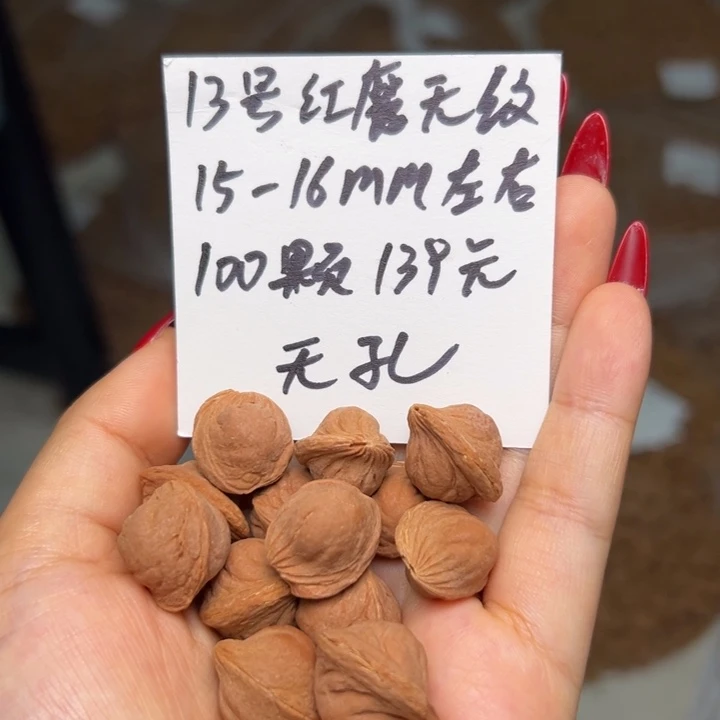 13号红磨无纹
15-16MM左右
100颗139元
无孔